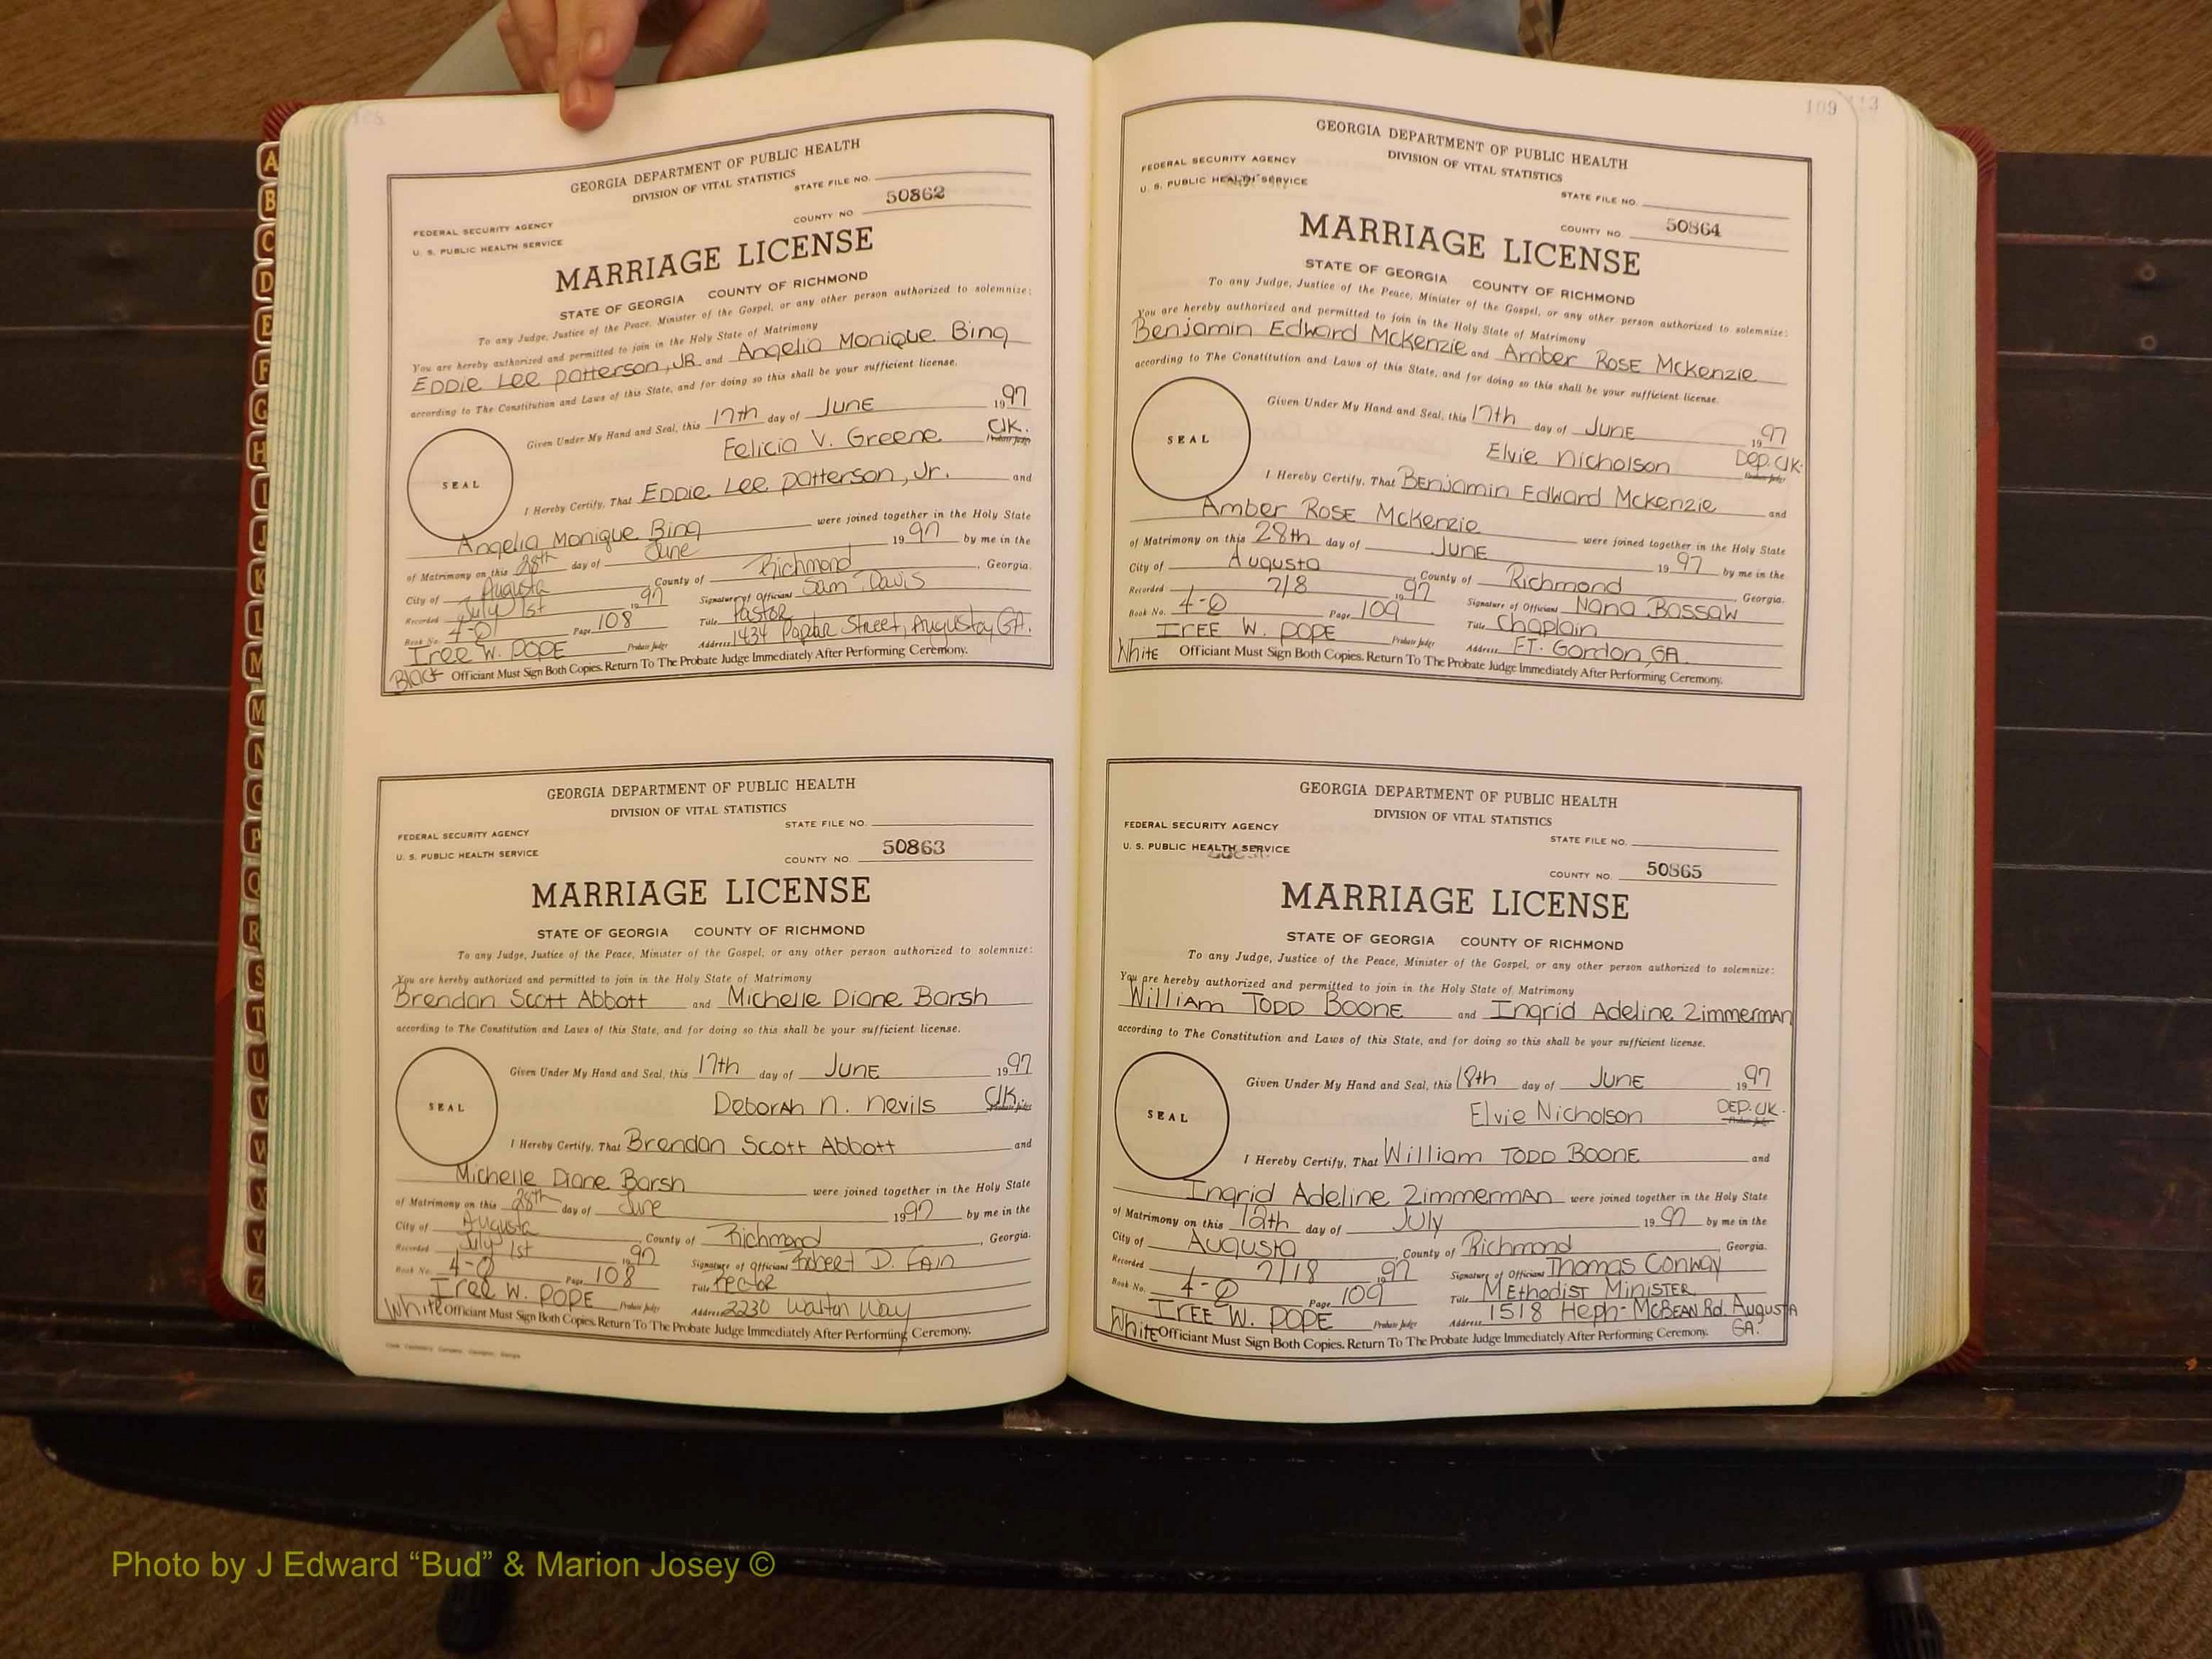 108
GEORGIA DEPARTMENT OF PUBLIC HEALTH
DIVISION OF VITAL STATISTICS
STATE FILE NO.
FEDERAL SECURITY AGENCY
U. S. PUBLIC HEALTH SERVICE
COUNTY NO. 50862
MARRIAGE LICENSE
STATE OF GEORGIA COUNTY OF RICHMOND
To any Judge, Justice of the Peace, Minister of the Gospel, or any other person authorized to solemnize:
You are hereby authorized and permitted to join in the Holy State of Matrimony
Eddie Lee Patterson, JR. and Angelia Monique Bing
according to The Constitution and Laws of this State, and for doing so this shall be your sufficient license.
Given Under My Hand and Seal, this 17th day of June 1997
Felicia V. Greene Clk. Probate Judge
SEAL
I Hereby Certify, That Eddie Lee Patterson, Jr. and
Angelia Monique Bing were joined together in the Holy State
of Matrimony on this 28th day of June 1997 by me in the
City of Augusta, County of Richmond, Georgia.
Recorded July 1st 1997 Signature of Officiant Sam Davis
Book No. 4-Q Page 108 Title Pastor
Iree W. Pope Probate Judge Address 1434 Poplar Street, Augusta, GA.
Black Officiant Must Sign Both Copies. Return To The Probate Judge Immediately After Performing Ceremony.
GEORGIA DEPARTMENT OF PUBLIC HEALTH
DIVISION OF VITAL STATISTICS
STATE FILE NO.
FEDERAL SECURITY AGENCY
U. S. PUBLIC HEALTH SERVICE
COUNTY NO. 50863
MARRIAGE LICENSE
STATE OF GEORGIA COUNTY OF RICHMOND
To any Judge, Justice of the Peace, Minister of the Gospel, or any other person authorized to solemnize:
You are hereby authorized and permitted to join in the Holy State of Matrimony
Brendan Scott Abbott and Michelle Diane Barsh
according to The Constitution and Laws of this State, and for doing so this shall be your sufficient license.
Given Under My Hand and Seal, this 17th day of June 1997
Deborah N. Nevils Clk. Probate Judge
SEAL
I Hereby Certify, That Brendan Scott Abbott and
Michelle Diane Barsh were joined together in the Holy State
of Matrimony on this 28th day of June 1997 by me in the
City of Augusta, County of Richmond, Georgia.
Recorded July 1st 1997 Signature of Officiant Robert D. Fain
Book No. 4-Q Page 108 Title Rector
Iree W. Pope Probate Judge Address 2230 Walton Way
White Officiant Must Sign Both Copies. Return To The Probate Judge Immediately After Performing Ceremony.
109 113
GEORGIA DEPARTMENT OF PUBLIC HEALTH
DIVISION OF VITAL STATISTICS
FEDERAL SECURITY AGENCY
U. S. PUBLIC HEALTH SERVICE
STATE FILE NO.
COUNTY NO. 50864
MARRIAGE LICENSE
STATE OF GEORGIA COUNTY OF RICHMOND
To any Judge, Justice of the Peace, Minister of the Gospel, or any other person authorized to solemnize:
You are hereby authorized and permitted to join in the Holy State of Matrimony
Benjamin Edward McKenzie and Amber Rose McKenzie
according to The Constitution and Laws of this State, and for doing so this shall be your sufficient license.
Given Under My Hand and Seal, this 17th day of June 1997
Elvie Nicholson Dep. Clk. Probate Judge
SEAL
I Hereby Certify, That Benjamin Edward McKenzie and
Amber Rose McKenzie were joined together in the Holy State
of Matrimony on this 28th day of June 1997 by me in the
City of Augusta, County of Richmond Georgia.
Recorded 7/8 1997 Signature of Officiant Nana Bassaw
Book No. 4-Q Page 109 Title Chaplain
Iree W. Pope Probate Judge Address FT. Gordon, GA.
White Officiant Must Sign Both Copies. Return To The Probate Judge Immediately After Performing Ceremony.
GEORGIA DEPARTMENT OF PUBLIC HEALTH
DIVISION OF VITAL STATISTICS
FEDERAL SECURITY AGENCY
U. S. PUBLIC HEALTH SERVICE
STATE FILE NO.
COUNTY NO. 50865
MARRIAGE LICENSE
STATE OF GEORGIA COUNTY OF RICHMOND
To any Judge, Justice of the Peace, Minister of the Gospel, or any other person authorized to solemnize:
You are hereby authorized and permitted to join in the Holy State of Matrimony
William Todd Boone and Ingrid Adeline Zimmerman
according to The Constitution and Laws of this State, and for doing so this shall be your sufficient license.
Given Under My Hand and Seal, this 18th day of June 1997
Elvie Nicholson Dep. Clk. Probate Judge
SEAL
I Hereby Certify, That William Todd Boone and
Ingrid Adeline Zimmerman were joined together in the Holy State
of Matrimony on this 12th day of July 1997 by me in the
City of Augusta, County of Richmond, Georgia.
Recorded 7/18 1997 Signature of Officiant Thomas Conway
Book No. 4-Q Page 109 Title Methodist Minister
Iree W. Pope Probate Judge Address 1518 Heph-McBean Rd. Augusta GA.
White Officiant Must Sign Both Copies. Return To The Probate Judge Immediately After Performing Ceremony.
A
B
C
D
E
F
G
H
I
J
K
L
M
M
N
O
P
Q
R
S
T
U
V
W
X
Y
Z
Photo by J Edward “Bud” & Marion Josey ©